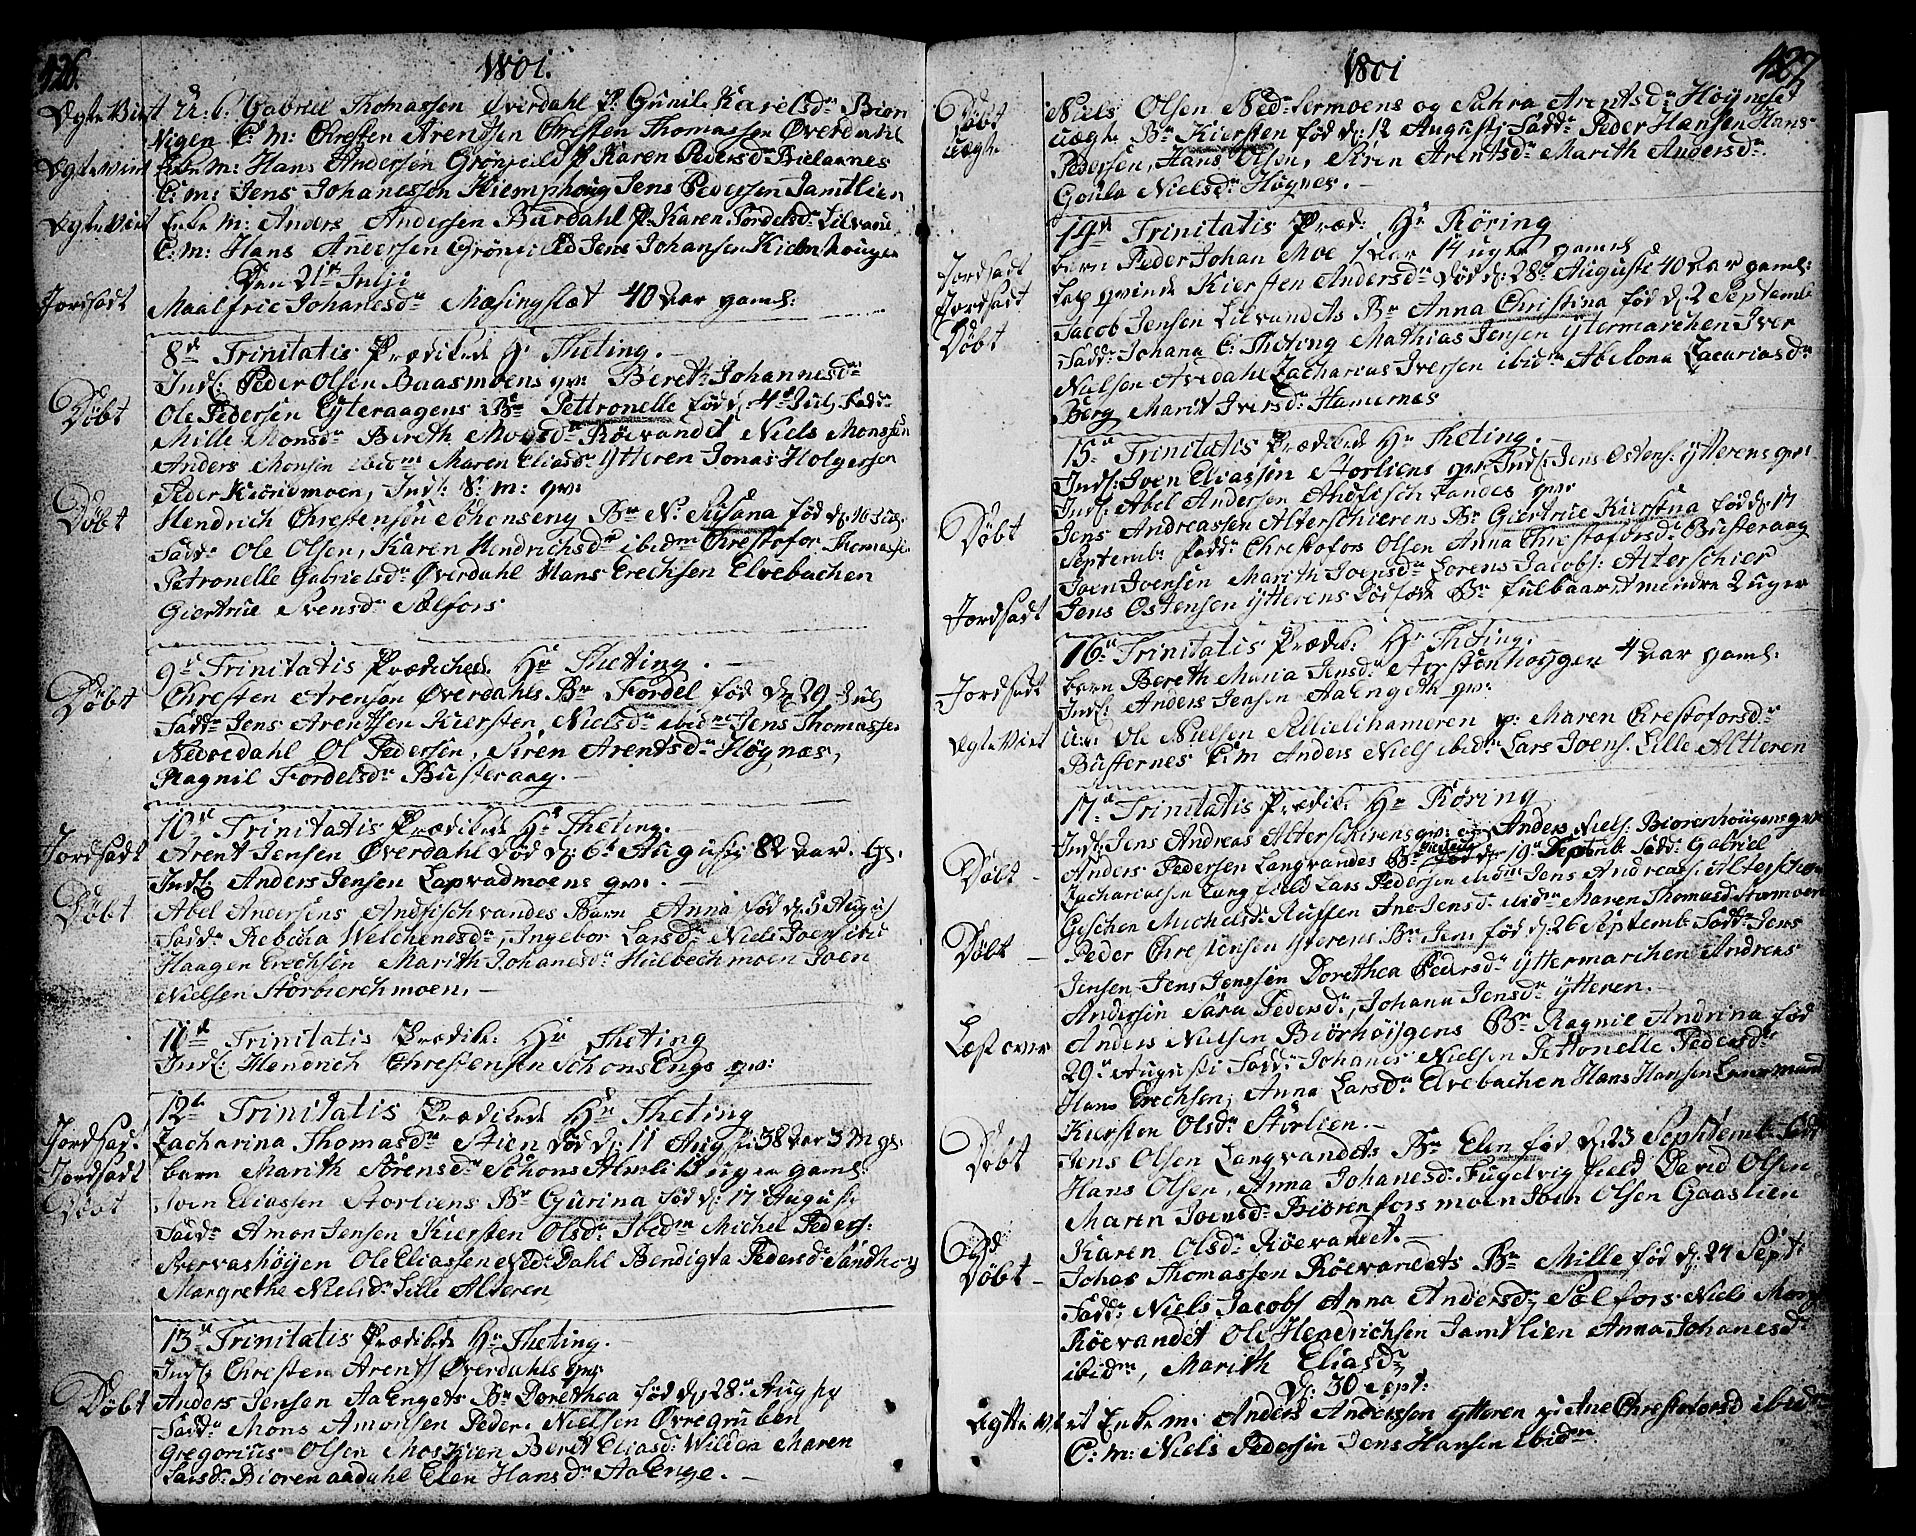 426.
1801.
Egte Viet U: C. Gabriel Thomassen Øverdahl P: Gunild Karelsdr Biør
Vigen C: M: Chresten Arentsen Chresten Thomassen Øverdahl
Egte Viet Enke M: Hans Andersen Grønfield P Karen Pedersdr Bielaanes
C: m: Jens Johanessen Kiemphoug Jens Pedersen Jamtlien
Egte Viet Enke M: Anders Andersen Burdahl P: Karen Fordelsdr Lilvand
C: M: Hans Andersen Grønfield Jens Johansen
Den 21de Julij
Jordsadt Maalfrie Johanesdr Mæsingslet 40 Aar gaml:
8de Trinitatis Prædikede Hr Theting.
Indl: Peder Olsen Baasmoens qv: Bereth Johannesdr
Døbt Ole Pedersen Ytteraagens Bn Pettronelle fød d: 4de Julj Fadd:
Mille Monsdr Bereth Monsdr Røevandet Niels Monssen
Anders Monsen ibidm Maren Eliasdr Ytteren Jonas Holgersen
Peder Kiønsmoen, Indl: S: m: qv:
Døbt Hendrich Chrestensen Schonseng Bn N: Susana fød d: 16 Julj.
Fadd: Ole Olsen, Karen Hendrichsdr ibidm Chrestofor Thomasse
Petronelle Gabrielsdr Øverdahl Hans Erechsen Elvebachen
Giertrue Svensdr Selfors
9de Trinitatis Prædiched. Hr Theting.
Døbt Chresten Arensen Øverdahls Bn Fordel fød d: 29 Julj
Fadd: Jens Arentsen Kiersten Nielsdr ibidm Jens Thomasse
Nedredahl Ol Pedersen, Siren Arentsdr Høgnæs,
Ragnil Fordelsdr Busteraag.
10de Trinitatis Prædikede Hr Theting.
Jordsadt Arent Jensen Øverdahl død d: 6te Augustij 82 Aar. gl.
Indl: Anders Jensen Lapvadmoens qv:
Døbt Abel Andersens Andfischvandes Barn Anna fød d: 5 Augusj
Fadd: Rebecha Welchendsdr, Ingebor Larsdr Niels Joensen ibid
Haagen Erechsen Marith Johanesdr Hulbechmoen Joen
Nielsen Storbierchmoen.
11de Trinitatis Prædike. Hr Theting
Indl: Hendrich Chrestensen Schons Engs qv:
12te Trinitatis Prædikede Hr Theting
Jordsad: Zacharina Thomasdr Stien død d: 11 Augsti 38 Aar 3 M gl:
Jordsadt barn Marith Sørensdr Schons gaml
Døbt Joen Eliassen Storliens Bn Gurina fød d: 17 Augusj
Fadd: Amon Jensen Kiersten Olsdr Ibidm Michel Peders:
Ole Eliassen Dahl Bendigta Pedersdr Sandhoy
Margrethe Nielsdr Lille Alteren
13de Trinitatis Prædikede Hr Theting.
Indl: Chresten Arents Øverdahls qv:
Døbt Anders Jensen Aa Engets Bn Dorethea fød d: 28de Augstj
Fadd: Mons Amonsen Peder Nielsen Øvregruben
Gregorius Olsen Beret Eliasdr Wilden Maren
Larsdr Biørenaadahl Elen Hansdr Aa Enge.
427
1801
Døbt Niels Olsen Ned: Sermoens og Sahra Arentsdr Høgneset
Uægte Uægte Bn Kiersten fød d: 12 Augustj Fadd: Peder Hansen Hans
Pedersen, Hans Olsen, Siren Arentsdr Marith Andersdr
Goula Nielsdr Høgnes.
14de Trinitatis Præd: Hr Røring
Jordsadt barn: Peder Johan Moe 1 Aar 14 uger gaml
Jordsadt Lap qvinde Kiersten Andersdr død d: 28de Auguste 40 Aar gaml:
Døbt Jacob Jensen Lilvandets Bn Anna Christina fød d: 2 Septemb
Fadd: Johana C: Theting Mathias Jensen Yttermarchen Iver
Nielsen Avedahl Zacharias Iversen ibidm Abelona Zacariasdr
Berg Marit Iversdr Hamernes
15de Trinitatis Prædiked Hr Theting.
Indl: Joen Eliassen Storliens qv: Indl: Jens Ostens: Ytterens qv:
Indl: Abel Andersen Andfischvandes qv:
Døbt Jens Andreassen Alterschierens Bn Giertrue Kierstina fød d: 17
Septemb: Fadd: Chrestofors Olsen Anna Chrestoforsdr Busteraag
Joen Joensen Marith Joensdr Lorens Jacobs: Alterschier
Jordsadt Jens Ostensen Ytterens Bn fulbaar: mindre 2 uger
16de Trinitatis Prædik: Hr Theting.
Jordsadt barn Bereth Maria Jensdr 4 Aar gaml:
Indl: Anders Jensen Aa Engeth qv:
Egte Viet U: C: Ole Nielsen p: Maren Chrestoforsdr
Busternes C: M Anders Niels ibidm Lars Joens: Lille Alteren
17de Trinitatis Prædik: Hr Røring
Indl: Jens Andreas Alterschierens qv: Anders Niels: Biørenhougens qv:
Døbt Anders Pedersen Langvandes Bn fød d: 19de Septemb Fadd: Gabriel
Zachariassen Langfield Lars Pedersen ibidm Jens Andreas: Alterschier
Gischen Michelsdr Russen Ane Jensdr ibidm Maren Thomasdr Stormoen
Døbt Peder Chrestensen Ytterens Bn Jens fød d: 26 Septemb: Fadd: Jens
Jensen Jens Jenssen Dorethea Pedersdr Yttermarchen Andreas
Andersen Sara Pedersdr, Johana Jensdr Ytteren.
Læst over Anders Nielsen Biørhøjgens Bn Ragnil Andrina fød
29de Augusti Fadd: Johanes Nielsen Pettonelle Pedersdr
Hans Erechsen, Anna Larsdr Elvebachen Hans Hansen
Kiersten Olsdr Storlien.
Døbt Jens Olsen Langvandets Bn Elen fød d: 23 Septemb: Fadd
Hans Olsen, Anna Johanesdr Fugelvig field David Olsen
Maren Joensdr Biørenforsmoen Joen Olsen Gaaslien
Karen Olsdr Røevandet.
Døbt Johas Thomassen Røevandets Bn Mille fød d: 24 Sept:
Fadd: Niels Jacobs Anna Andersdr Selfors Niels Mons
Røevandet Ole Hendrichsen Jamtlien Anna Johanesdr
ibidm, Marith Eliasdr
d: 30 Sept:
Egtte viet Enke m: Anders Anderssen Ytteren p: Ane Chrestoforsd ibidm
C: M: Niels Pedersen Jens Hansen ibidm